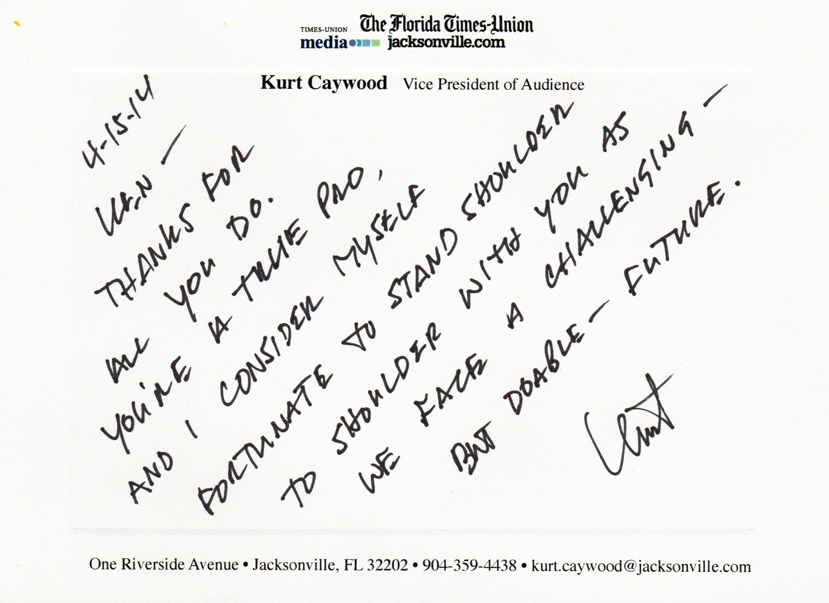 TIMES-UNION The Florida Times-Union
media jacksonville.com
Kurt Caywood Vice President of Audience
4-15-14
KEN —
THANKS FOR
ALL YOU DO.
YOU'RE A TRUE PRO,
AND I CONSIDER MYSELF
FORTUNATE TO STAND SHOULDER
TO SHOULDER WITH YOU AS
WE FACE A CHALLENGING —
BUT DOABLE — FUTURE.
Kurt
One Riverside Avenue • Jacksonville, FL 32202 • 904-359-4438 • kurt.caywood@jacksonville.com